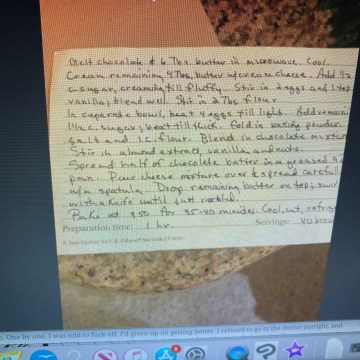 Melt chocolate & 6 Tbs. butter in microwave. Cool.
Cream remaining 4 Tbs. butter w/cream cheese. Add 1/2
c. sugar, creaming till fluffy. Stir in 2 eggs and 1 tsp.
vanilla; blend well. Stir in 2 Tbs flour.
In separate bowl, beat 4 eggs till light. Add remaini
1 1/2 c. sugar; beat till thick. Fold in baking powder,
salt and 1 c. flour. Blend in chocolate mixture
Stir in almond extract, vanilla and nuts.
Spread half of chocolate batter in a greased 9
pan. Pour cheese mixture over & spread careful
w/a spatula. Drop remaining batter on top; swir
with a knife until just marbled.
Bake at 350 for 35-40 minutes. Cool, cut, refrig
Preparation time: 1 hr. Servings: 40 brow
One by one, I was told to fuck off. I'd given up on getting better. I refused to go to the doctor outright, and